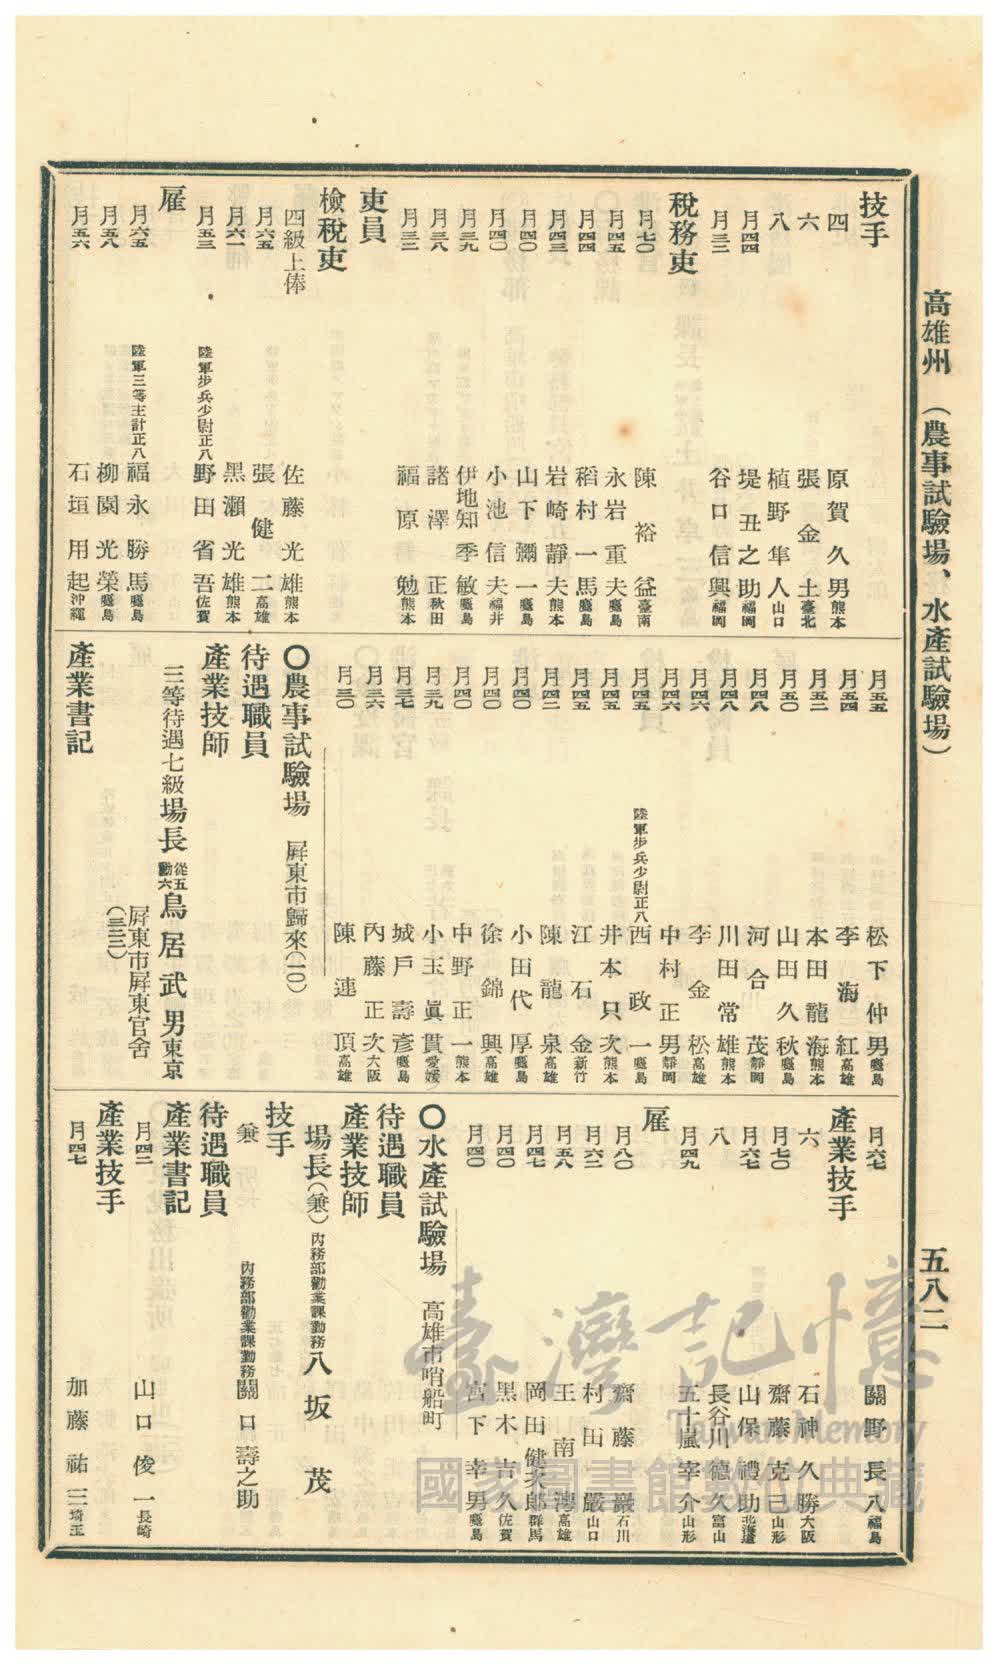 高雄州 （農事試驗場、水產試驗場）
五八二
技手
四 原賀久男 熊本
六 張金土 臺北
八 植野隼人 山口
月四四 堤丑之助 福岡
月三二 谷口信興 福岡
稅務吏
月七〇 陳裕益 臺南
月四五 永岩重夫 鹿島
月四四 稻村一馬 鹿島
月四三 岩崎靜夫 熊本
月四〇 山下彌一 鹿島
月四〇 小池信夫 福井
月三九 伊地知季敏 鹿島
月三八 諸澤正 秋田
月三二 福原勉 熊本
吏員
檢稅吏
四級上俸 佐藤光雄 熊本
月六五 張健二 高雄
月六一 黑瀨光雄 熊本
月五三 陸軍步兵少尉正八 野田省吾 佐賀
雇
月六五 陸軍三等主計正八 福永勝馬 鹿島
月五八 柳園光榮 鹿島
月五六 石垣用起 沖繩
月五五 松下仲男 鹿島
月五四 李海紅 高雄
月五二 本田龍海 熊本
月五〇 山田久秋 鹿島
月四八 河合茂 靜岡
月四八 川田常雄 熊本
月四六 李金松 高雄
月四六 中村正男 靜岡
月四五 陸軍步兵少尉正八 西政一 鹿島
月四五 井本只次 熊本
月四五 江石金 新竹
月四二 陳龍泉 高雄
月四〇 小田代厚 鹿島
月四〇 徐錦興 高雄
月四〇 中野正一 熊本
月三九 小玉眞貫 愛媛
月三七 城戶壽彥 鹿島
月三六 內藤正次 大阪
月三〇 陳連頂 高雄
〇農事試驗場 屏東市歸來（一〇）
待遇職員
產業技師
三等待遇七級 場長 從五勳六 鳥居武男 東京
屏東市屏東官舍
（三三）
產業書記
月六七 關野長八 福島
產業技手
六 石神久勝 大阪
月七〇 齋藤克己 山形
月六七 山保禮助 北海道
八 長谷川德久 富山
月四九 五十嵐宰介 山形
雇
月八〇 齋藤巖 石川
月六二 村田嚴 山口
月五八 王南灣 高雄
月四七 岡田健次郎 群馬
月四〇 黑木吉久 佐賀
月四〇 宮下幸男 鹿島
〇水產試驗場 高雄市哨船町
待遇職員
產業技師
場長（兼） 內務部勸業課勤務 八坂茂
技手
兼 內務部勸業課勤務 關口壽之助
待遇職員
產業書記
月四二 山口俊一 長崎
產業技手
月四七 加藤祐三 埼玉
臺灣記憶
Taiwan Memory
國家圖書館數位典藏